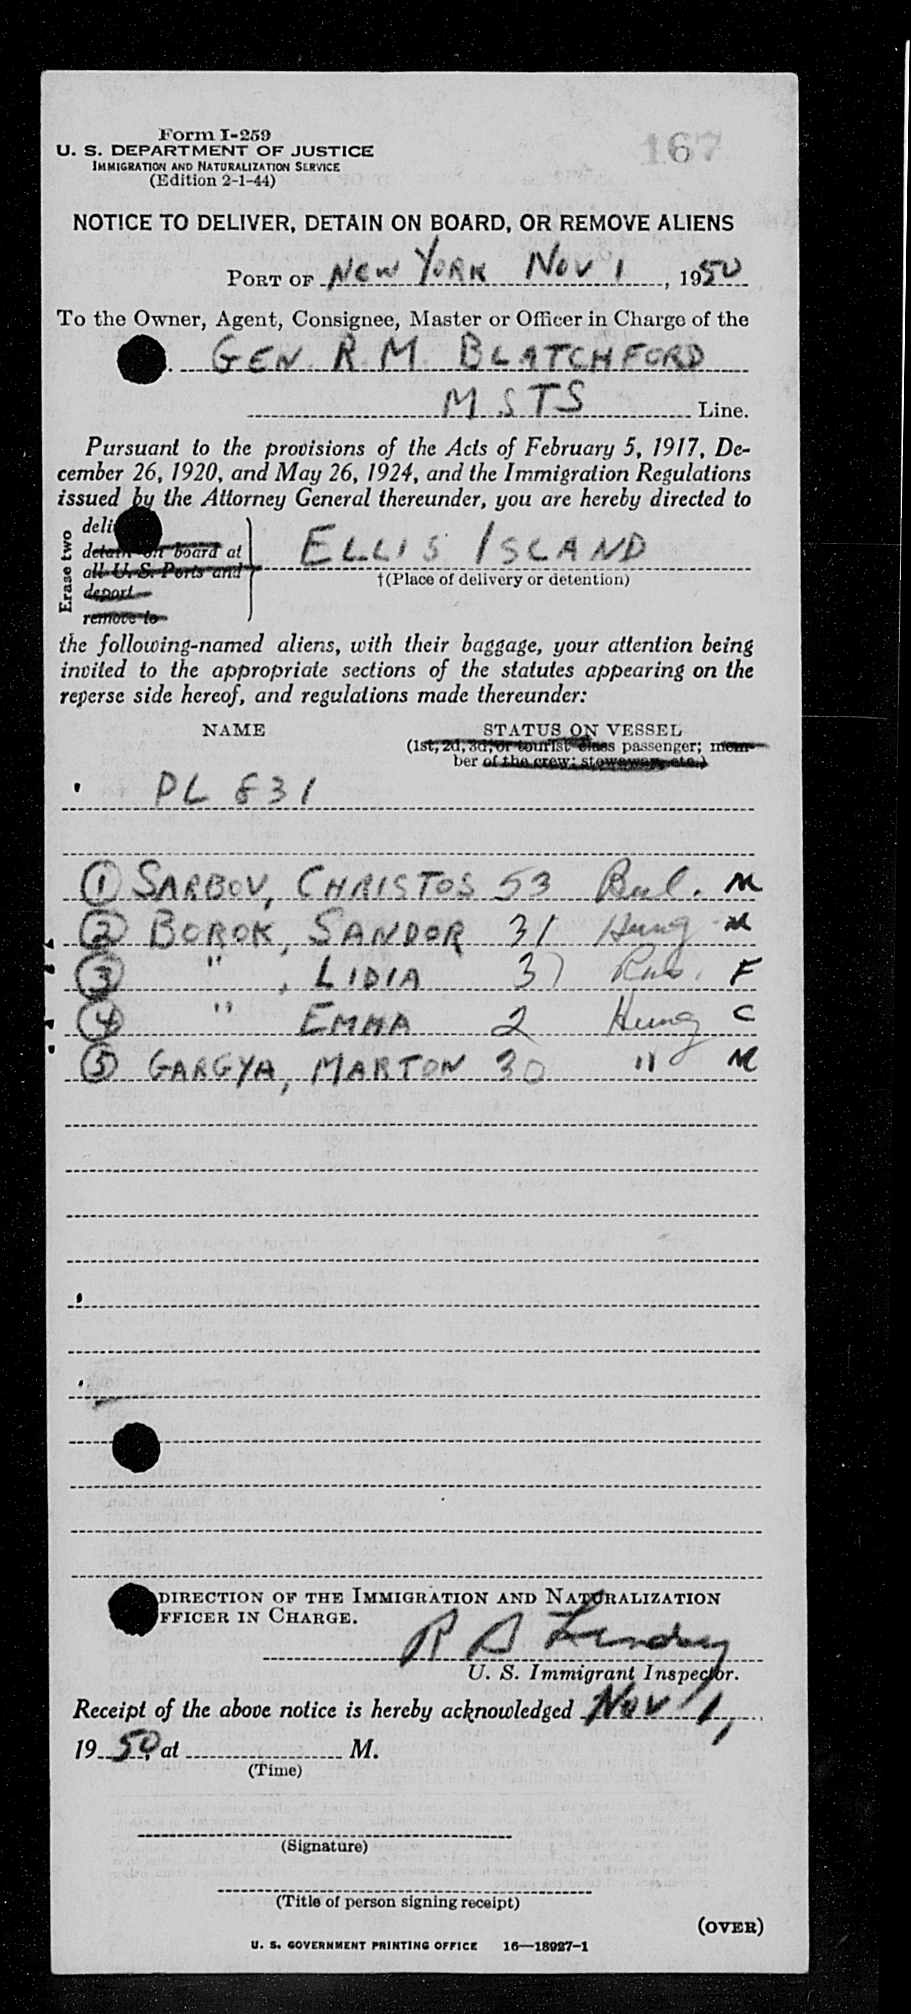 167
Form I-259
U. S. DEPARTMENT OF JUSTICE
IMMIGRATION AND NATURALIZATION SERVICE
(Edition 2-1-44)
NOTICE TO DELIVER, DETAIN ON BOARD, OR REMOVE ALIENS
PORT OF NEW YORK NOV 1, 1950
To the Owner, Agent, Consignee, Master or Officer in Charge of the
GEN. R. M. BLATCHFORD
MSTS Line.
Pursuant to the provisions of the Acts of February 5, 1917, De-
cember 26, 1920, and May 26, 1924, and the Immigration Regulations
issued by the Attorney General thereunder, you are hereby directed to
Erase two
deli
detain on board at
all U. S. Ports and
deport
remove to
ELLIS ISLAND
†(Place of delivery or detention)
the following-named aliens, with their baggage, your attention being
invited to the appropriate sections of the statutes appearing on the
reverse side hereof, and regulations made thereunder:
NAME STATUS ON VESSEL
(1st, 2d, 3d, or tourist class passenger; mem-
ber of the crew; stowaway, etc.)
PL 831
1 SARBOV, CHRISTOS 53 Bul. M
2 BOROK, SANDOR 31 Hung M
3 " , LIDIA 37 F
4 " EMMA 2 Hung C
5 GARGYA, MARTON 30 " M
DIRECTION OF THE IMMIGRATION AND NATURALIZATION
FFICER IN CHARGE.
R A Lindsey
U. S. Immigrant Inspector.
Receipt of the above notice is hereby acknowledged NOV 1,
1950, at M.
(Time)
(Signature)
(Title of person signing receipt)
(OVER)
U. S. GOVERNMENT PRINTING OFFICE 16—18927-1